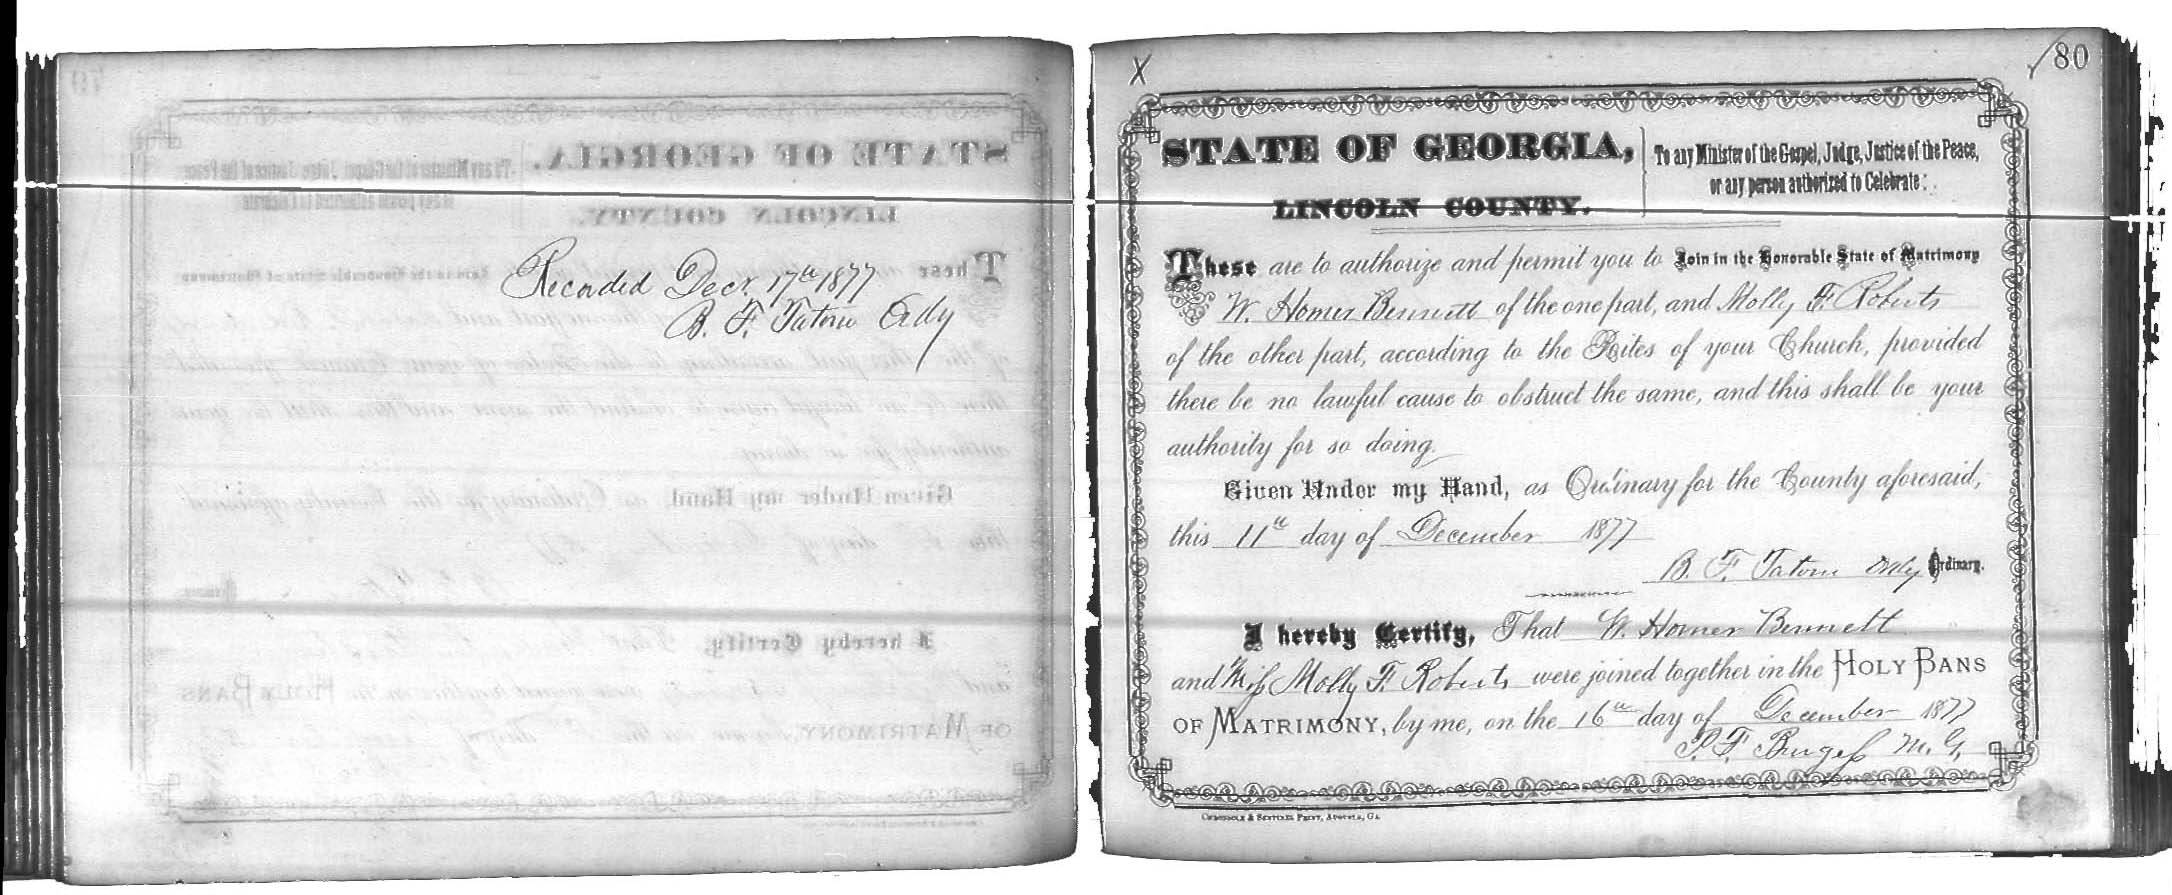 Recorded Decr. 17th 1877
B. F. Tatom Ordy
X
80
STATE OF GEORGIA,
LINCOLN COUNTY.
To any Minister of the Gospel, Judge, Justice of the Peace,
or any person authorized to Celebrate:
These are to authorize and permit you to Join in the Honorable State of Matrimony
W. Homer Bennett of the one part, and Molly F. Roberts
of the other part, according to the Rites of your Church, provided
there be no lawful cause to obstruct the same, and this shall be your
authority for so doing.
Given Under my Hand, as Ordinary for the County aforesaid,
this 11th day of December 1877
B. F. Tatom Ordy Ordinary.
I hereby Certify, That W. Homer Bennett
and Miss Molly F. Roberts were joined together in the HOLY BANS
OF MATRIMONY, by me, on the 16th day of December 1877
P. F. Burgess M. G.
CHRONICLE & SENTINEL PRINT, AUGUSTA, GA.